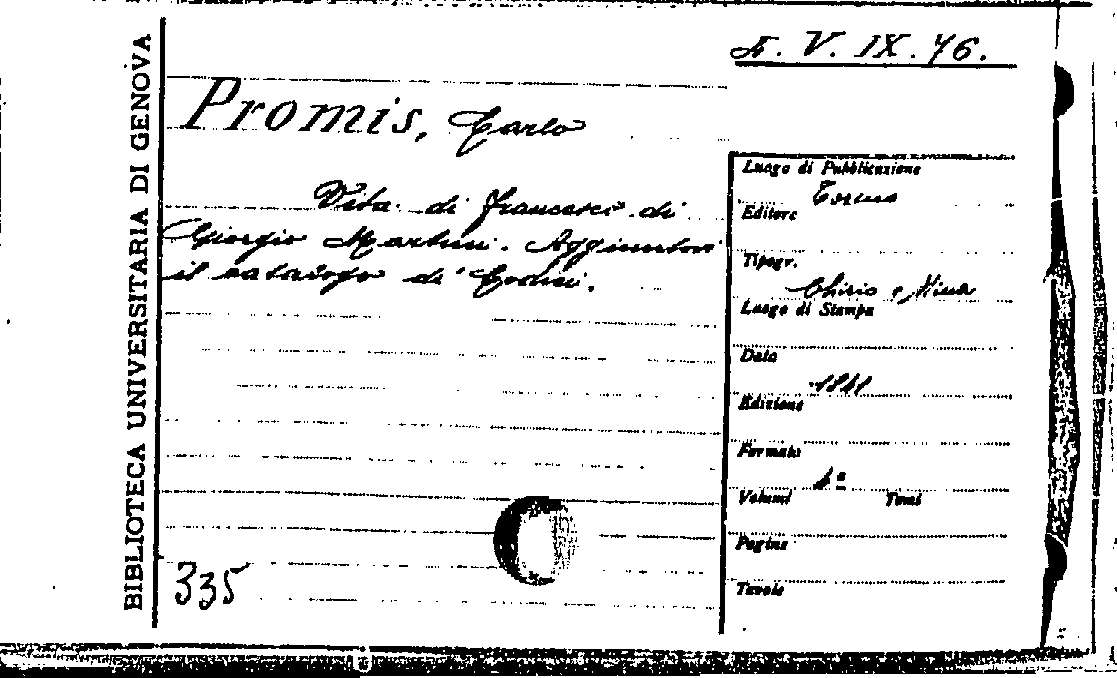 BIBLIOTECA UNIVERSITARIA DI GENOVA
F. V. IX. 76.
Promis, Carlo
Vita di Francesco di
Giorgio Martini. Aggiuntovi
il catalogo de' Codici.
335
Luogo di Pubblicazione
Torino
Editore
Tipogr.
Chirio e Mina
Luogo di Stampa
Data
1841
Edizione
Formato
Volumi
Tomi
Pagine
Tavole